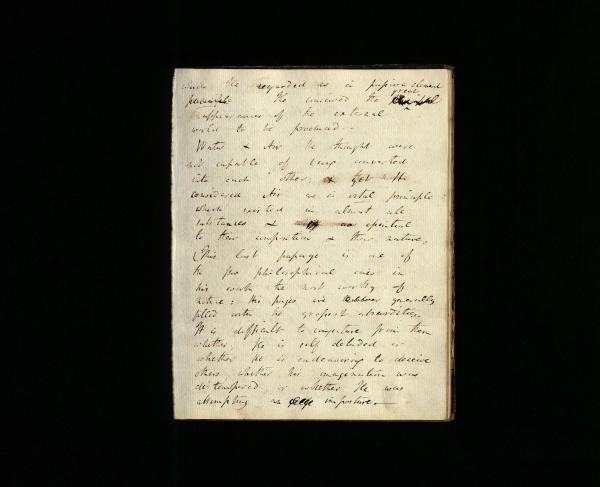 he regarded as a passive element
He conceived the great
appearances of the external
world to be produced. -
Water & Air he thought were
not capable of being converted
into each other;
considered Air as a vital principle
which existed in almost all
substances & essential
to their composition & their nature.
(This last passage is one of
the few philosophical ones in
his work the most worthy of
notice: His pages are generally
filled with the grossest absurdities.
It is difficult to conjecture from them
whether He is self deluded or
whether he is endeavouring to deceive
others, whether his imagination was
distempered, or whether He was
attempting an imposture. -